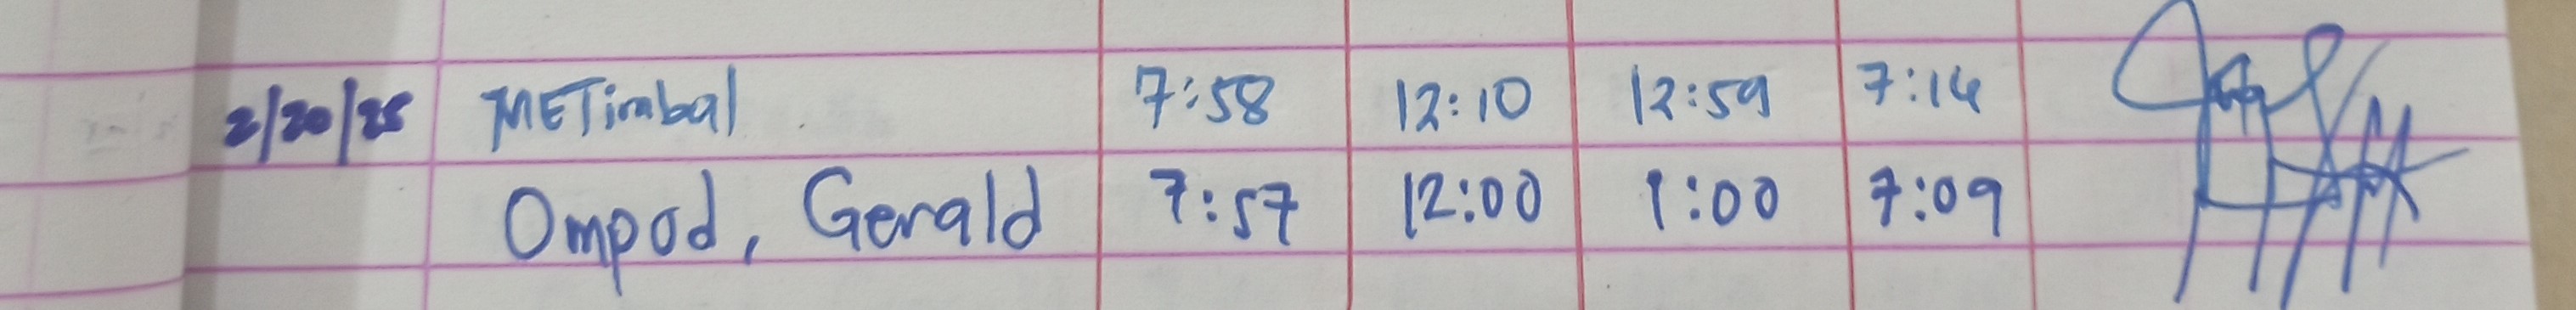 2/20/25 METimbal 7:58 12:10 12:59 7:14
Ompod, Gerald 7:57 12:00 1:00 7:09